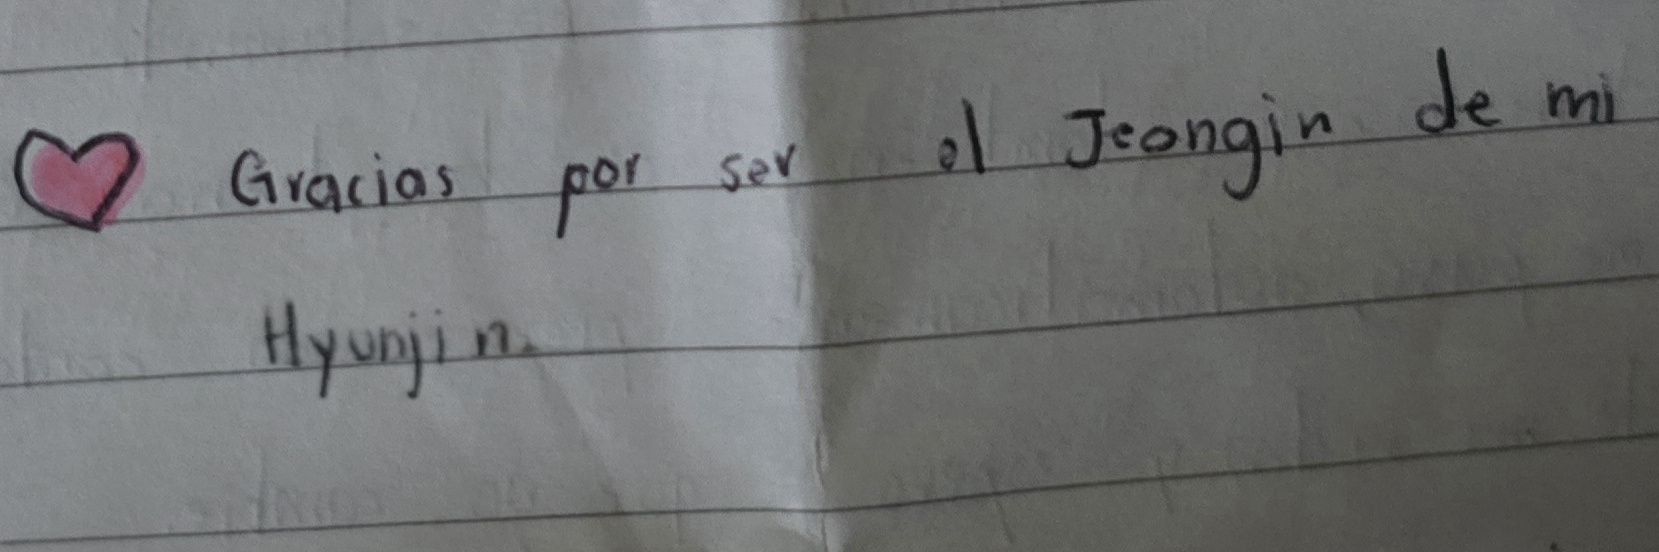 Gracias por ser el Jeongin de mi
Hyunjin.